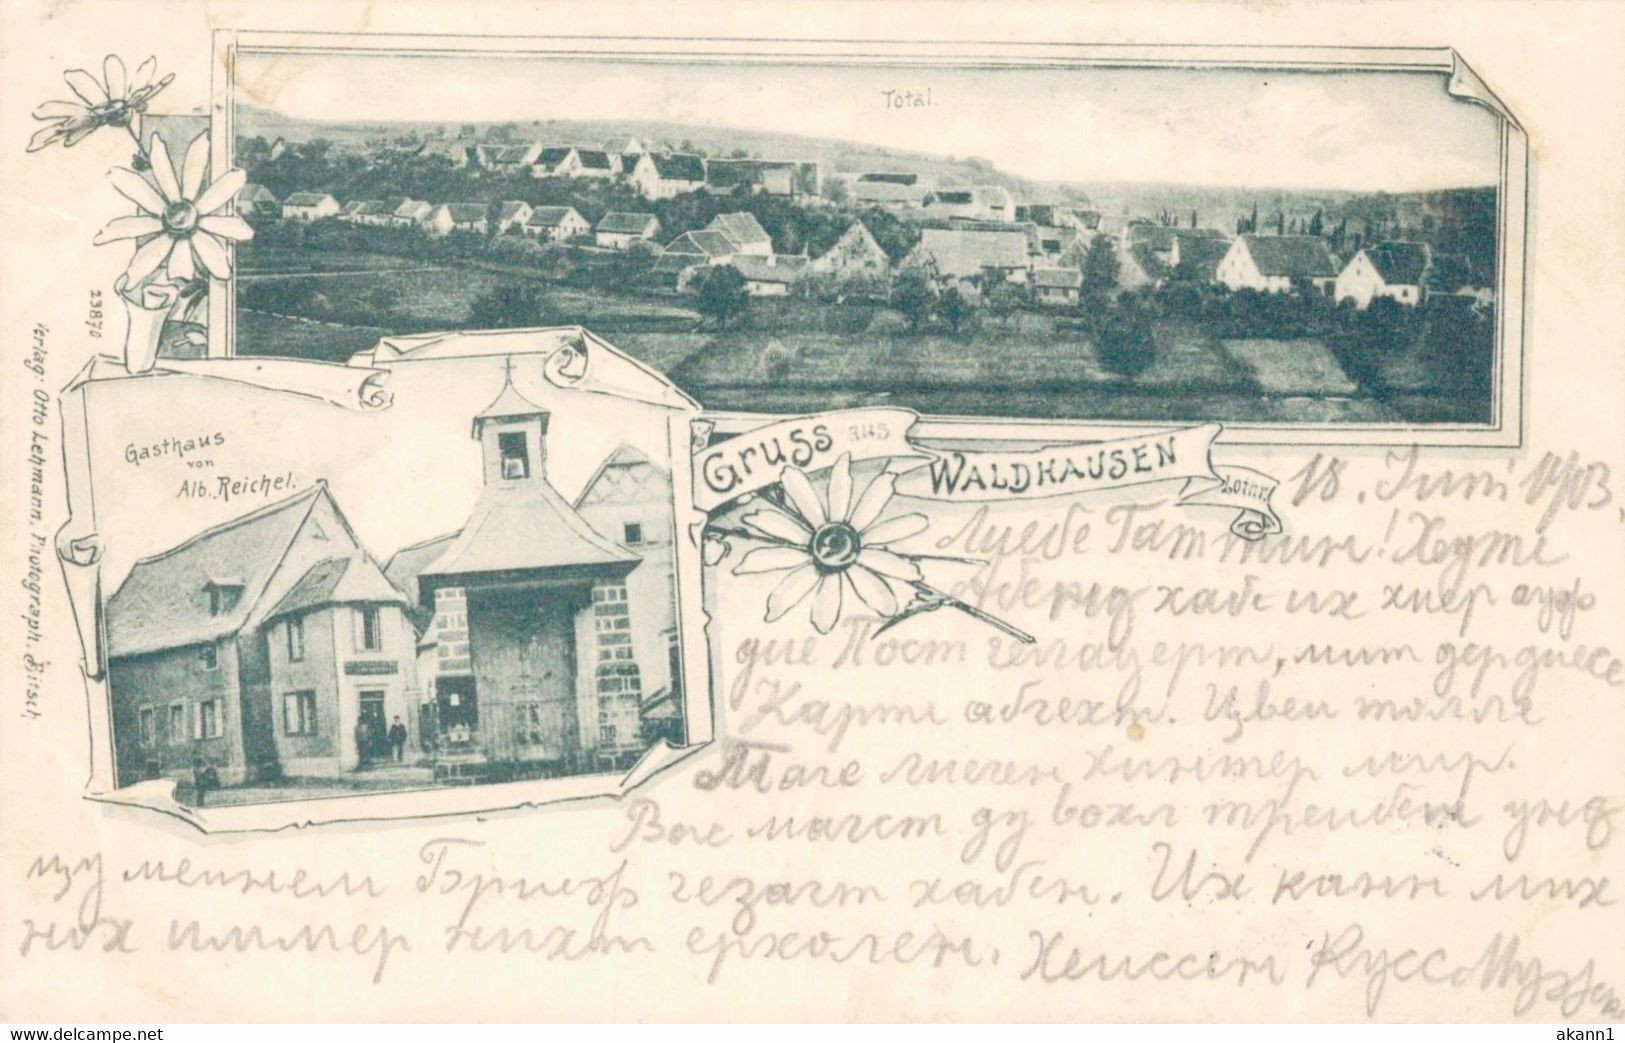 Total.
23870
Verlag: Otto Lehmann, Photograph, Bitsch
Gasthaus
von
Alb. Reichel.
Gruss aus
WALDHAUSEN
Lothr.
18. Juni 1903.
Лиебе Гаттин! Хеуте
Абенд хабе их хиер ауф
дие Пост гелауерт, мит дер диесе
Карте абгехт. Цвеи толле
Таге лиеген хинтер мир.
Вас магст ду вохл треибен унд
цу меинем Бриеф гезагт хабен. Их канн мих
нох иммер нихт ерхолен. Хеиссен Кусс
akann1
www.delcampe.net